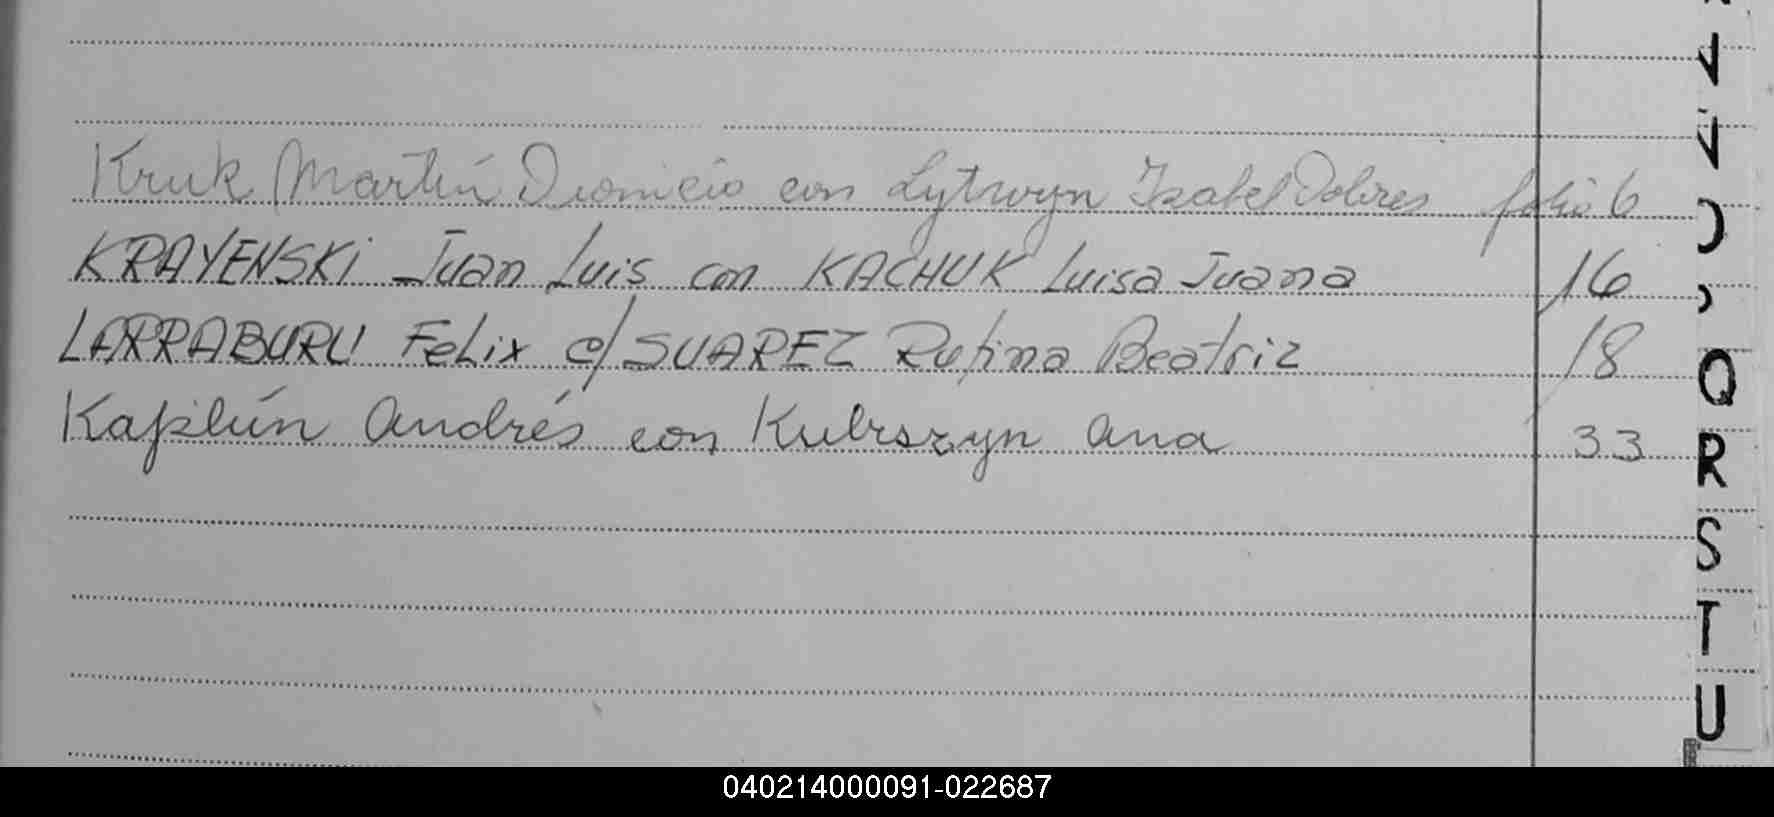 Kruk Martín Dionicio con Lytwyn Isabel Dolores folio 6
KRAYENSKi Juan Luis con KACHUK Luisa Juana 16
LARRABURU Felix c/ SUAREZ Rufina Beatriz 18
Kaplún Andrés con Kubrszyn Ana 33
Q
R
S
T
U
040214000091-022687